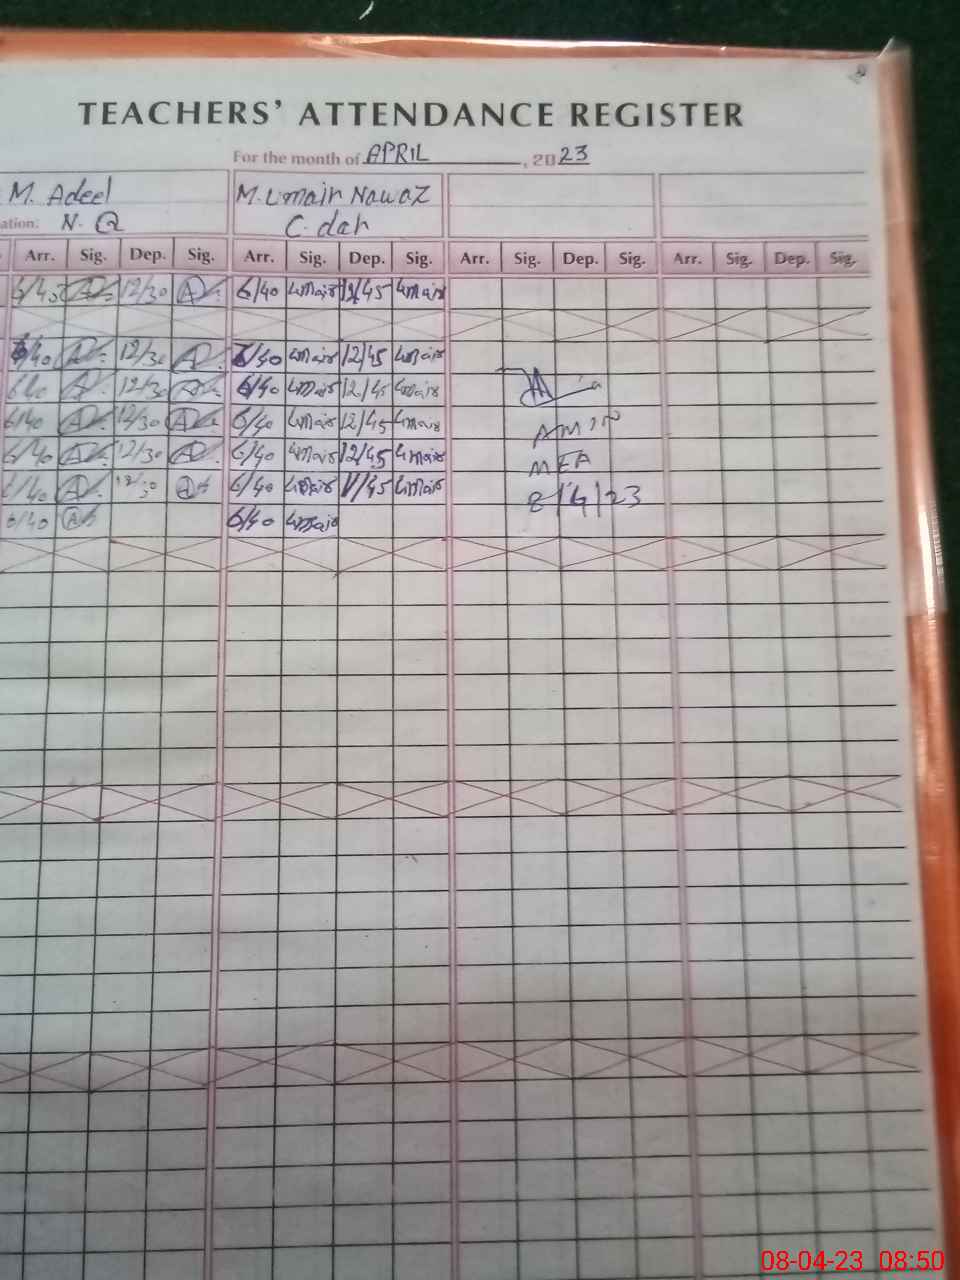 TEACHERS' ATTENDANCE REGISTER
For the month of APRIL, 2023
M. Adeel M. Umair Nawaz
ation: N. Q C. dar
Arr. Sig. Dep. Sig. Arr. Sig. Dep. Sig. Arr. Sig. Dep. Sig. Arr. Sig. Dep. Sig.
6/40 12/30 6/40 Umair 12/45 Umair
6/40 12/30 6/40 Umair 12/45 Umair
6/40 12/30 6/40 Umair 12/45 Umair
6/40 12/30 6/40 Umair 12/45 Umair
6/40 12/30 6/40 Umair 12/45 Umair
6/40 12/30 6/40 Umair 11/45 Umair
6/40 6/40 Umair
MEA
8/4/23
08-04-23 08:50